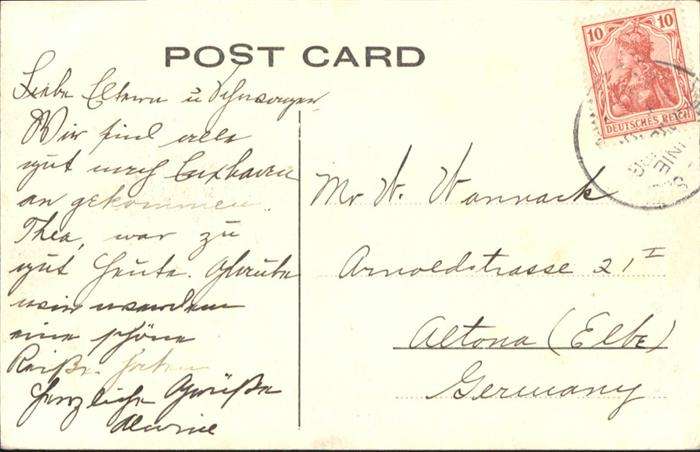 POST CARD
Liebe Eltern u Schwager
Wir sind alle
gut nach Cuxhaven
an gekommen.
Thea, war zu
gut heute. Glaube
wir werden
eine schöne
Reise haben
herzliche Grüße
Alwine
10 10
DEUTSCHES REICH
Mr W. Wannack
Arnoldstrasse 21 I
Altona (Elbe)
Germany